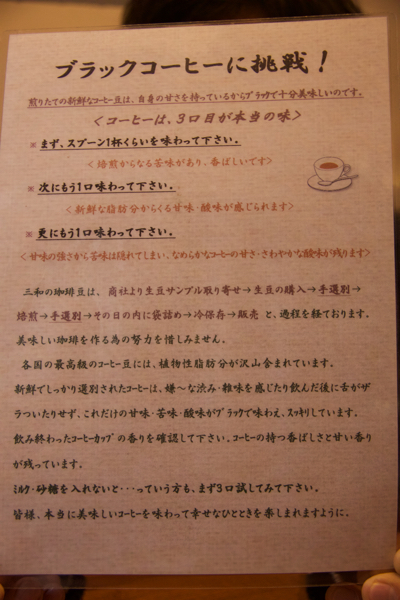 ブラックコーヒーに挑戦！
煎りたての新鮮なコーヒー豆は、自身の甘さを持っているからブラックで十分美味しいのです。
＜コーヒーは、3口目が本当の味＞
※ まず、スプーン1杯くらいを味わって下さい。
＜焙煎からなる苦味があり、香ばしいです＞
※ 次にもう1口味わって下さい。
＜新鮮な脂肪分からくる甘味・酸味が感じられます＞
※ 更にもう1口味わって下さい。
＜甘味の強さから苦味は隠れてしまい、なめらかなコーヒーの甘さ・さわやかな酸味が残ります＞
三和の珈琲豆は、商社より生豆サンプル取り寄せ→生豆の購入→手選別→
焙煎→手選別→その日の内に袋詰め→冷保存→販売 と、過程を経ております。
美味しい珈琲を作る為の努力を惜しみません。
各国の最高級のコーヒー豆には、植物性脂肪分が沢山含まれています。
新鮮でしっかり選別されたコーヒーは、嫌〜な渋み・雑味を感じたり飲んだ後に舌がザ
ラついたりせず、これだけの甘味・苦味・酸味がブラックで味わえ、スッキリしています。
飲み終わったコーヒーカップの香りを確認して下さい。コーヒーの持つ香ばしさと甘い香り
が残っています。
ミルク・砂糖を入れないと・・・っていう方も、まず3口試してみて下さい。
皆様、本当に美味しいコーヒーを味わって幸せなひとときを楽しまれますように。